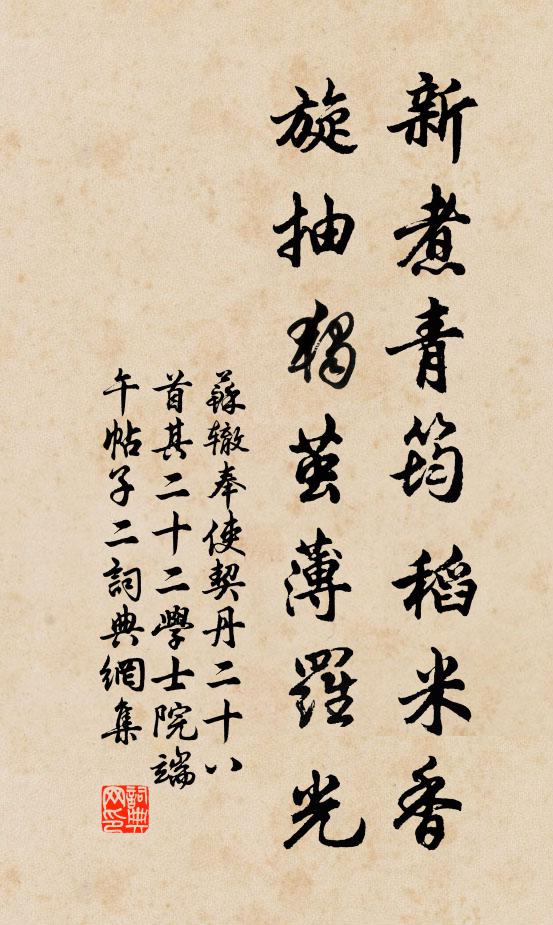 新煮青筠稻米香
旋抽獨茧薄羅光
蘇辙奉使契丹二十八
首其二十二學士院端
午帖子二詞典網集
詞典网印